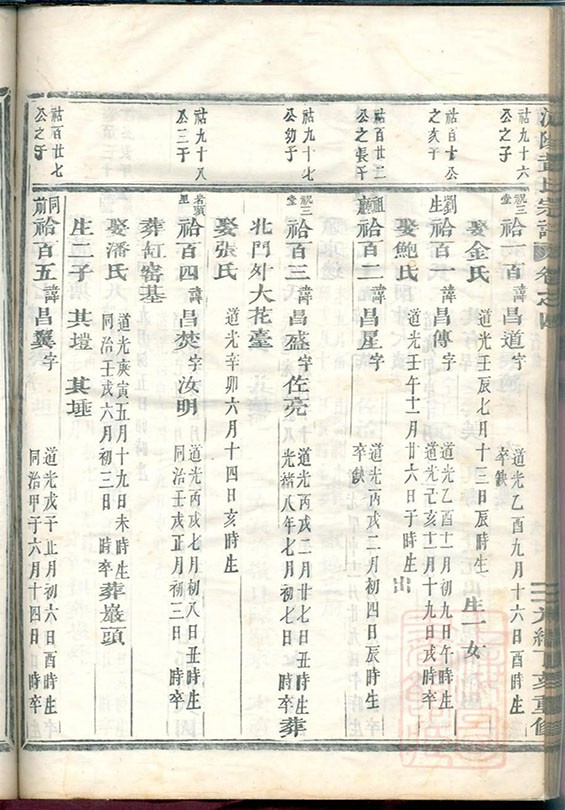 祐九十六
公之子
祝三堂 祫一百諱昌道字 道光乙酉九月十六日酉時生
卒缺
娶金氏 道光壬辰七月十三日辰時生 生一女
祐百十公
之亥子
劉生 祫百一諱昌傳字 道光乙酉十一月初九日午時生
道光己亥十二月十九日戌時卒
娶鮑氏 道光壬午十二月廿六日子時生 出
祐百廿二
公之長子
祫百二諱昌星字 道光丙戌二月初四日辰時生
卒缺
祐九十七
公幼子
祝三堂 祫百三諱昌盛字佐亮 道光丙戌二月廿七日丑時生
光緒八年七月初七日 時卒 葬
北門外大花臺
娶張氏 道光辛卯六月十四日亥時生
祐九十八
公三子
祫百四諱昌焚字汝明 道光丙戌七月初八日丑時生
同治壬戌正月初三日 時卒
葬缸窑基
娶潘氏 道光庚寅五月十九日未時生
同治壬戌六月初三日 時卒 葬巖頭
生二子 其塏 其埵
祐百廿七
公之子
同前 祫百五諱昌翼字 道光戊子正月初六日酉時生
同治甲子六月十四日 時卒